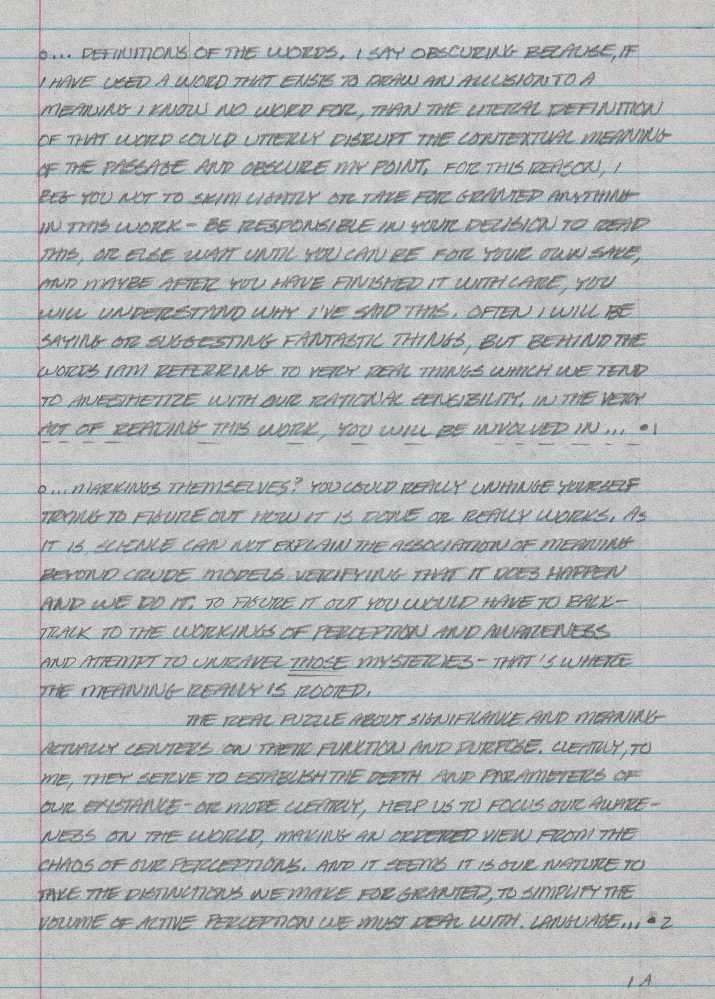 o... DEFINITIONS OF THE WORDS. I SAY OBSCURING BECAUSE, IF
I HAVE USED A WORD THAT ENDS TO DRAW AN ALLUSION TO A
MEANING I KNOW NO WORD FOR, THAN THE LITERAL DEFINITION
OF THAT WORD COULD UTTERLY DISRUPT THE CONTEXTUAL MEANING
OF THE PASSAGE AND OBSCURE MY POINT. FOR THIS REASON, I
BEG YOU NOT TO SKIM LIGHTLY OR TAKE FOR GRANTED ANYTHING
IN THIS WORK - BE RESPONSIBLE IN YOUR DECISION TO READ
THIS, OR ELSE WAIT UNTIL YOU CAN BE FOR YOUR OWN SAKE,
AND MAYBE AFTER YOU HAVE FINISHED IT WITH CARE, YOU
WILL UNDERSTAND WHY I'VE SAID THIS. OFTEN I WILL BE
SAYING OR SUGGESTING FANTASTIC THINGS, BUT BEHIND THE
WORDS I AM REFERRING TO VERY REAL THINGS WHICH WE TEND
TO ANESTHETIZE WITH OUR RATIONAL SENSIBILITY. IN THE VERY
ACT OF READING THIS WORK, YOU WILL BE INVOLVED IN... •1
o... MARKINGS THEMSELVES? YOU COULD REALLY UNHINGE YOURSELF
TRYING TO FIGURE OUT HOW IT IS DONE OR REALLY WORKS. AS
IT IS, SCIENCE CAN NOT EXPLAIN THE ASSOCIATION OF MEANING
BEYOND CRUDE MODELS VERIFYING THAT IT DOES HAPPEN
AND WE DO IT. TO FIGURE IT OUT YOU WOULD HAVE TO BACK-
TRACK TO THE WORKINGS OF PERCEPTION AND AWARENESS
AND ATTEMPT TO UNRAVEL THOSE MYSTERIES - THAT'S WHERE
THE MEANING REALLY IS ROOTED.
THE REAL PUZZLE ABOUT SIGNIFICANCE AND MEANING
ACTUALLY CENTERS ON THEIR FUNCTION AND PURPOSE. CLEARLY, TO
ME, THEY SERVE TO ESTABLISH THE DEPTH AND PARAMETERS OF
OUR EXISTANCE - OR MORE CLEARLY, HELP US TO FOCUS OUR AWARE-
NESS ON THE WORLD, MAKING AN ORDERED VIEW FROM THE
CHAOS OF OUR PERCEPTIONS. AND IT SEEMS IT IS OUR NATURE TO
TAKE THE DISTINCTIONS WE MAKE FOR GRANTED, TO SIMPLIFY THE
VOLUME OF ACTIVE PERCEPTION WE MUST DEAL WITH. LANGUAGE... •2
1 A